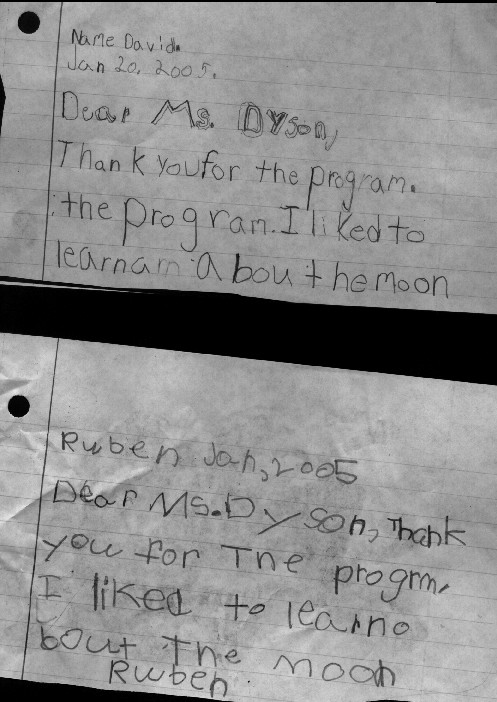 Name David.
Jan 20, 2005.
Dear Ms. Dyson,
Thank you for the program.
the program. I liked to
learnam Abou the moon
Ruben Jan, 2005
Dear Ms. Dyson, Thank
you for The progrm,
I liked to learno
bout The moon
Ruben